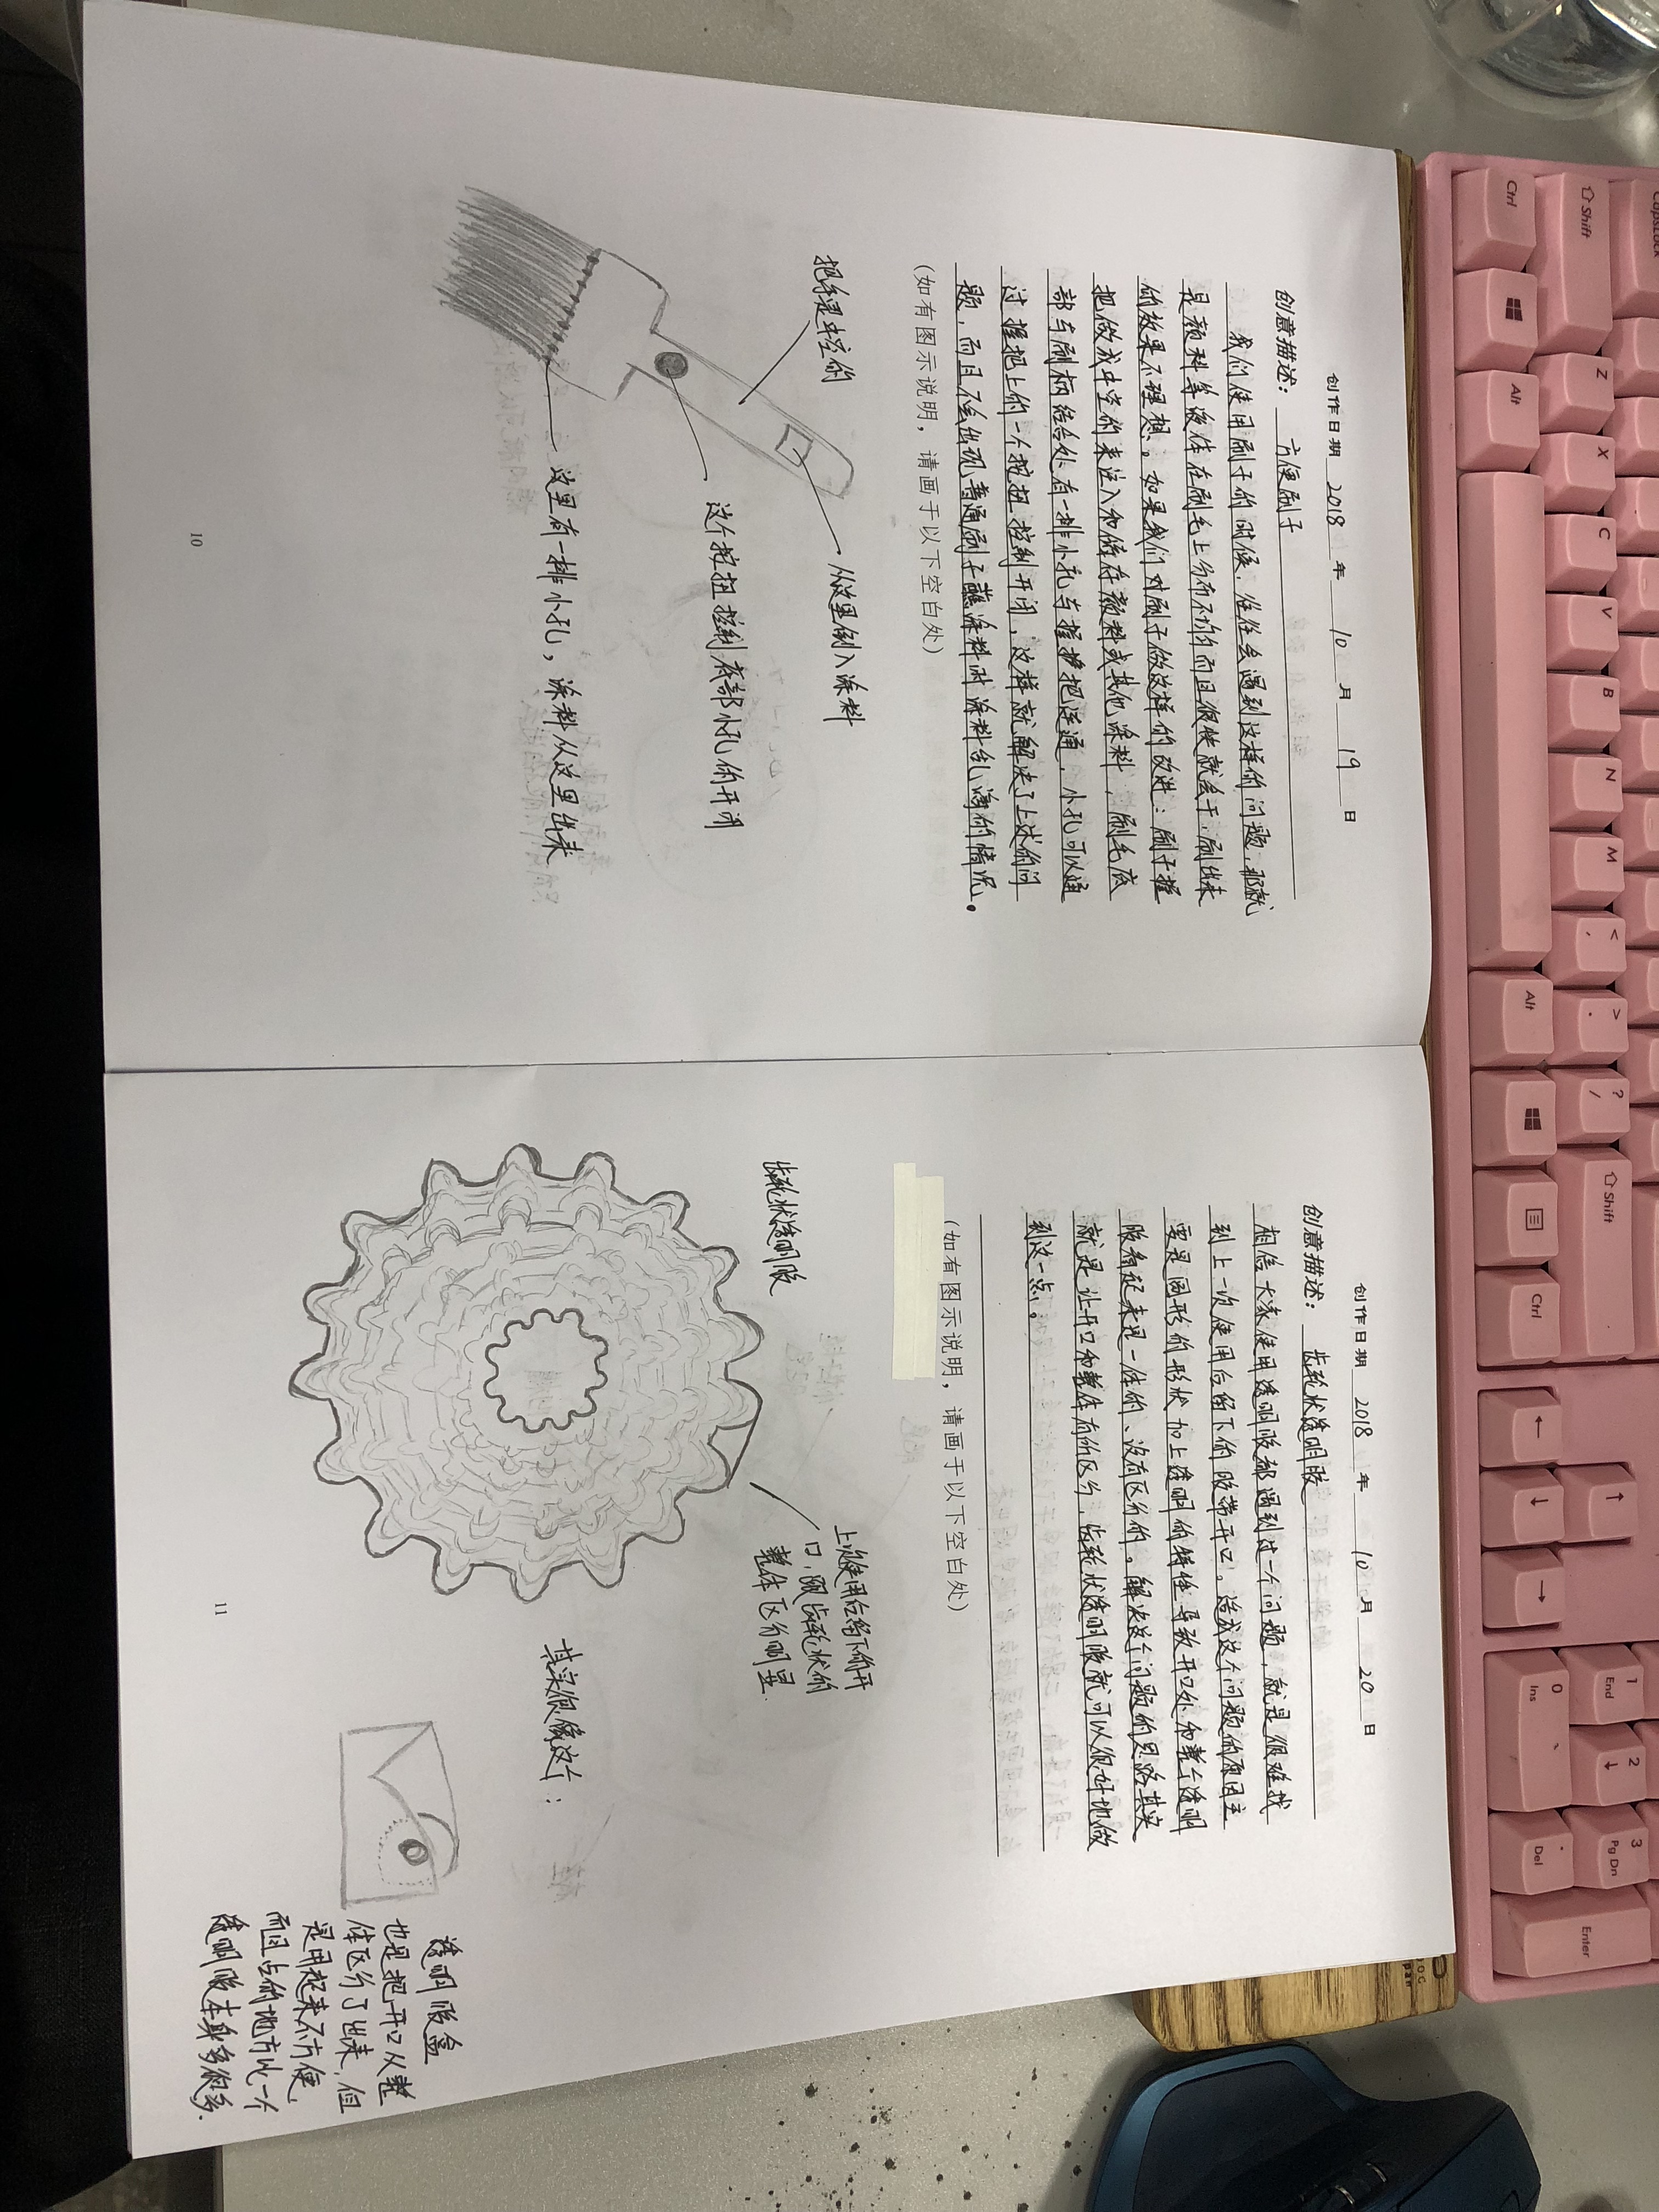 创作日期 2018 年 10 月 19 日
创意描述：方便刷子
我们使用刷子的时候，往往会遇到这样的问题，那就
是颜料等液体在刷毛上分布不均匀而且很快就会干，刷出来
的效果不理想。如果我们对刷子做这样的改进：刷子握
把做成中空的来注入和储存颜料或其他涂料，刷毛底
部与刷柄结合处有一排小孔与握把连通，小孔可以通
过握把上的一个按扭控制开闭，这样就解决了上述的问
题，而且不会出现普通刷子蘸涂料时涂料乱滴的情况。
（如有图示说明，请画于以下空白处）
把手是中空的
从这里倒入涂料
这个按扭控制底部小孔的开闭
这里有一排小孔，涂料从这里出来
10
创作日期 2018 年 10 月 20 日
创意描述：齿轮状透明胶
相信大家使用透明胶都遇到过一个问题，就是很难找
到上一次使用后留下的胶带开口。造成这个问题的原因主
要是圆形的形状加上透明的特性导致开口处和整个透明
胶看起来是一体的、没有区分的。解决这个问题的思路其实
就是让开口和整体有所区分，齿轮状透明胶就可以很好地做
到这一点。
（如有图示说明，请画于以下空白处）
齿轮状透明胶
上次使用后留下的开
口，跟齿轮状的
整体区分明显.
其实很像这个：
透明胶盒
也是把开口从整
体区分了出来，但
是用起来不方便，
而且占的地方比一个
透明胶本身多很多.
11
CapsLock
Shift
Z
X
C
V
B
N
M
< ,
> .
? /
Shift
Ctrl
Alt
Alt
Ctrl
↑
← ↓ →
1 End
2 ↓
3 Pg Dn
0 Ins
. Del
Enter